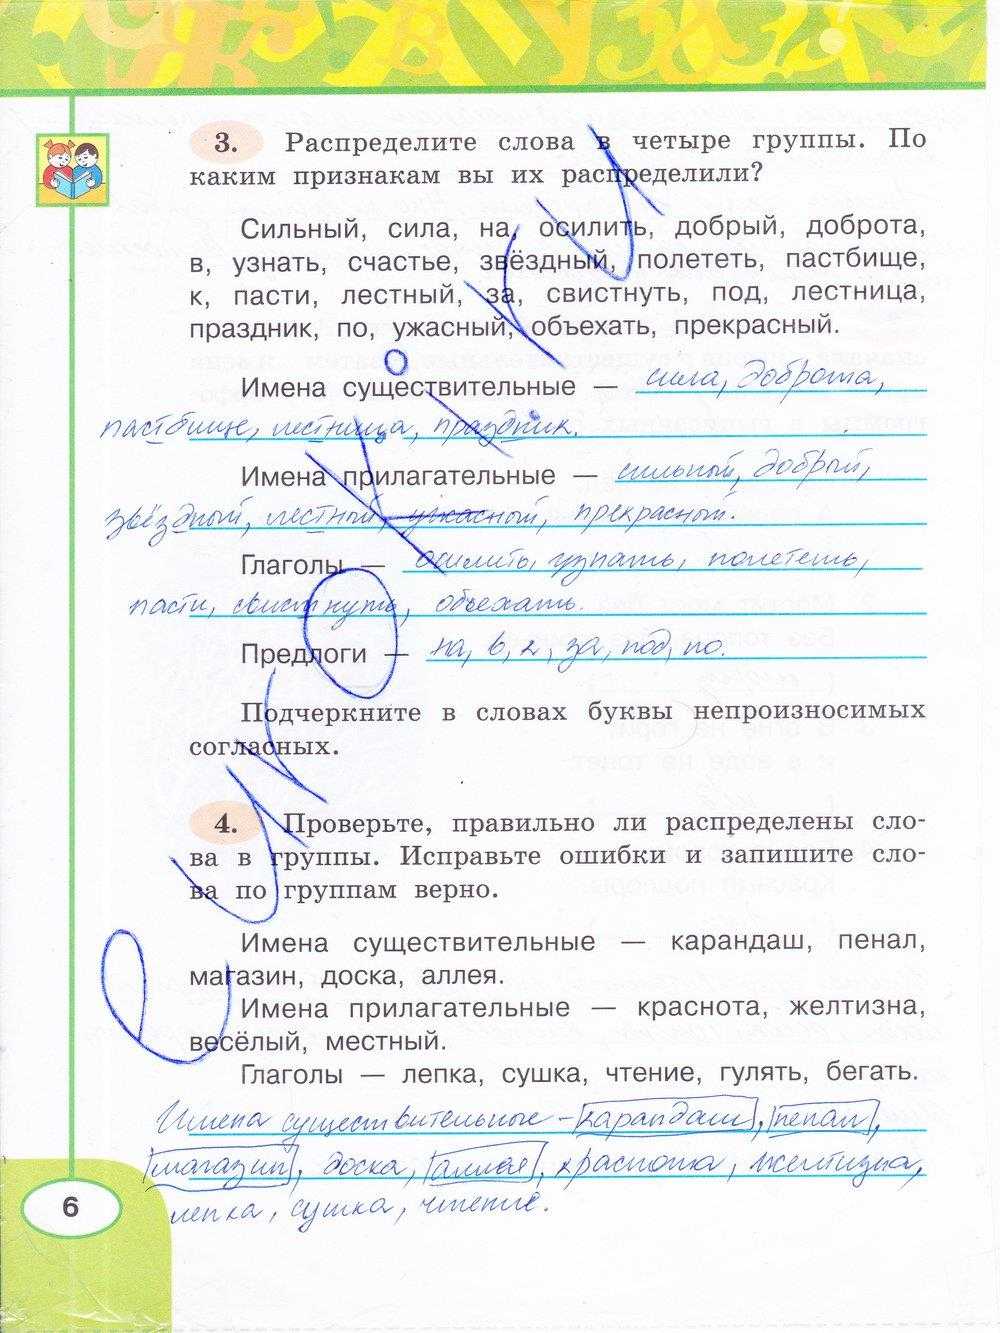 3. Распределите слова в четыре группы. По
каким признакам вы их распределили?
Сильный, сила, на, осилить, добрый, доброта,
в, узнать, счастье, звёздный, полететь, пастбище,
к, пасти, лестный, за, свистнуть, под, лестница,
праздник, по, ужасный, объехать, прекрасный.
Имена существительные — сила, доброта,
пастбище, лестница, праздник.
Имена прилагательные — сильный, добрый,
звёздный, лестный, ужасный, прекрасный.
Глаголы — осилить, узнать, полететь,
пасти, свистнуть, объехать.
Предлоги — на, в, к, за, под, по.
Подчеркните в словах буквы непроизносимых
согласных.
4. Проверьте, правильно ли распределены сло-
ва в группы. Исправьте ошибки и запишите сло-
ва по группам верно.
Имена существительные — карандаш, пенал,
магазин, доска, аллея.
Имена прилагательные — краснота, желтизна,
весёлый, местный.
Глаголы — лепка, сушка, чтение, гулять, бегать.
Имена существительные - карандаш, пенал,
магазин, доска, аллея, краснота, желтизна,
лепка, сушка, чтение.
6
еuroкi.ки